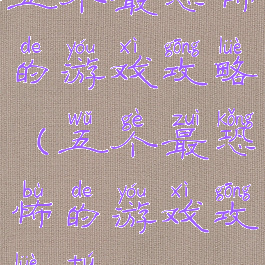 de yóu xì gōng lüè
的游戏攻略
wǔ gè zuì kǒng
(五个最恐
bù de yóu xì gōng
怖的游戏攻